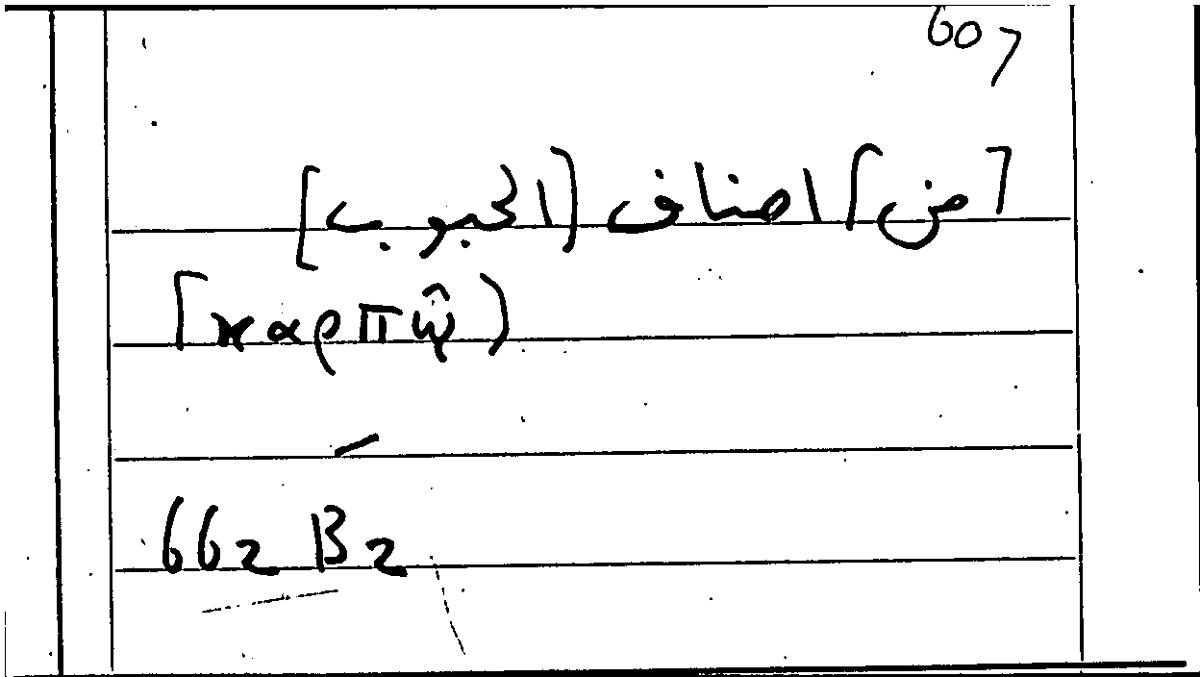 607
[من] اصناف [الحبوب]
[καρπῶν]
662 B2